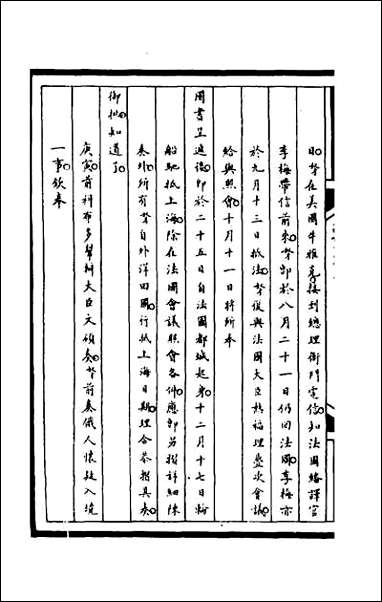 日奴才在美國牛雅爾接到總理衙門電信知法國繙譯官
李梅帶信前來奴才即於八月二十一日仍回法國李梅亦
於九月十三日抵法奴才復與法國大臣熱福理疊次會議
給與照會十月十一日將所奉
國書呈遞後即於二十五日自法國都城起身十二月十七日輪
船馳抵上海除在法國會議照會各件應即另摺詳細陳
奏外所有奴才自外洋回國行抵上海日期理合恭摺具奏
御批知道了
庚寅前科布多幫辦大臣文碩奏奴才前奏俄人懷疑入境
一事欽奉